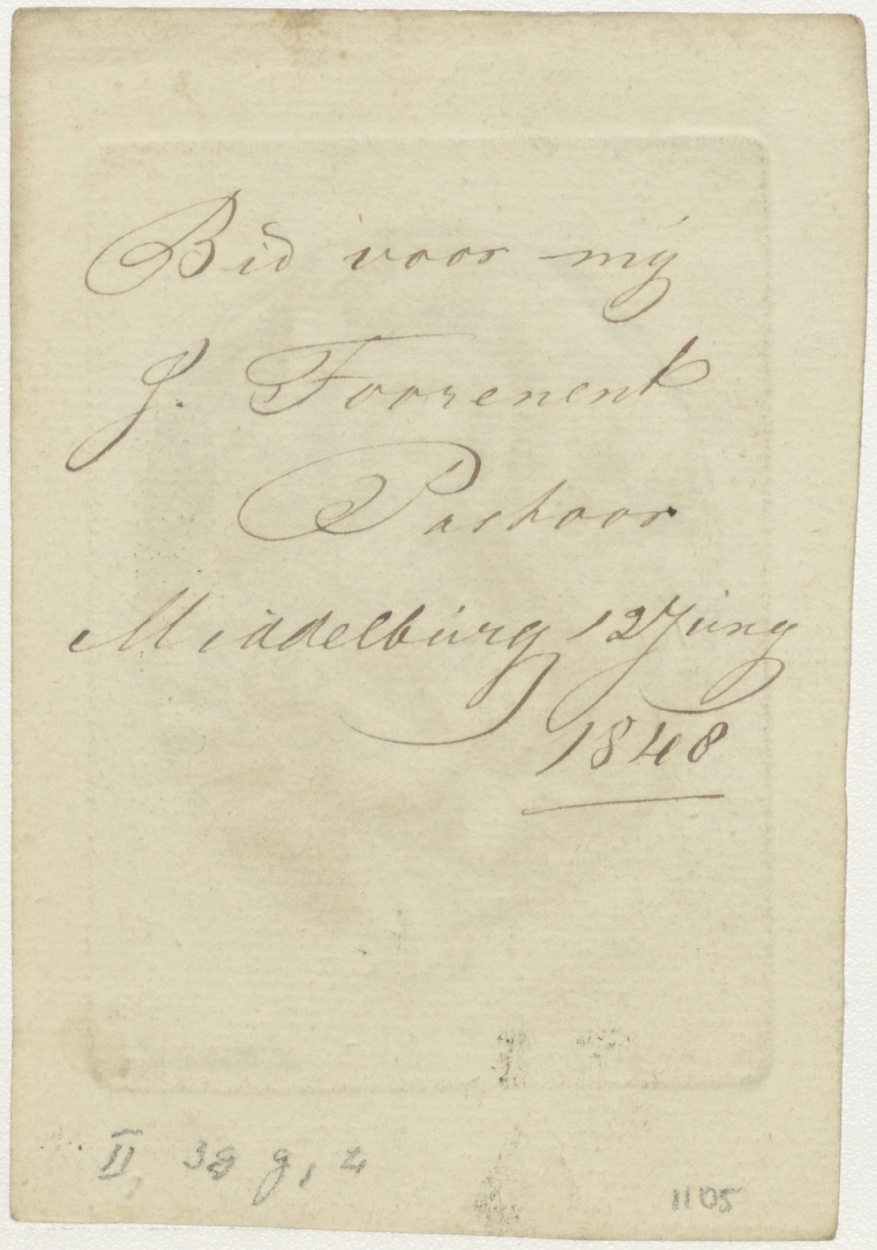 Bid voor mij
J. Foorenent
Pastoor
Middelburg 12 Juny
1848
II 38 g, 2
1105